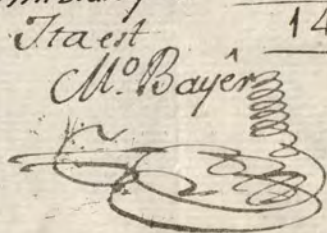 Ita est
14
M.º Bayêr